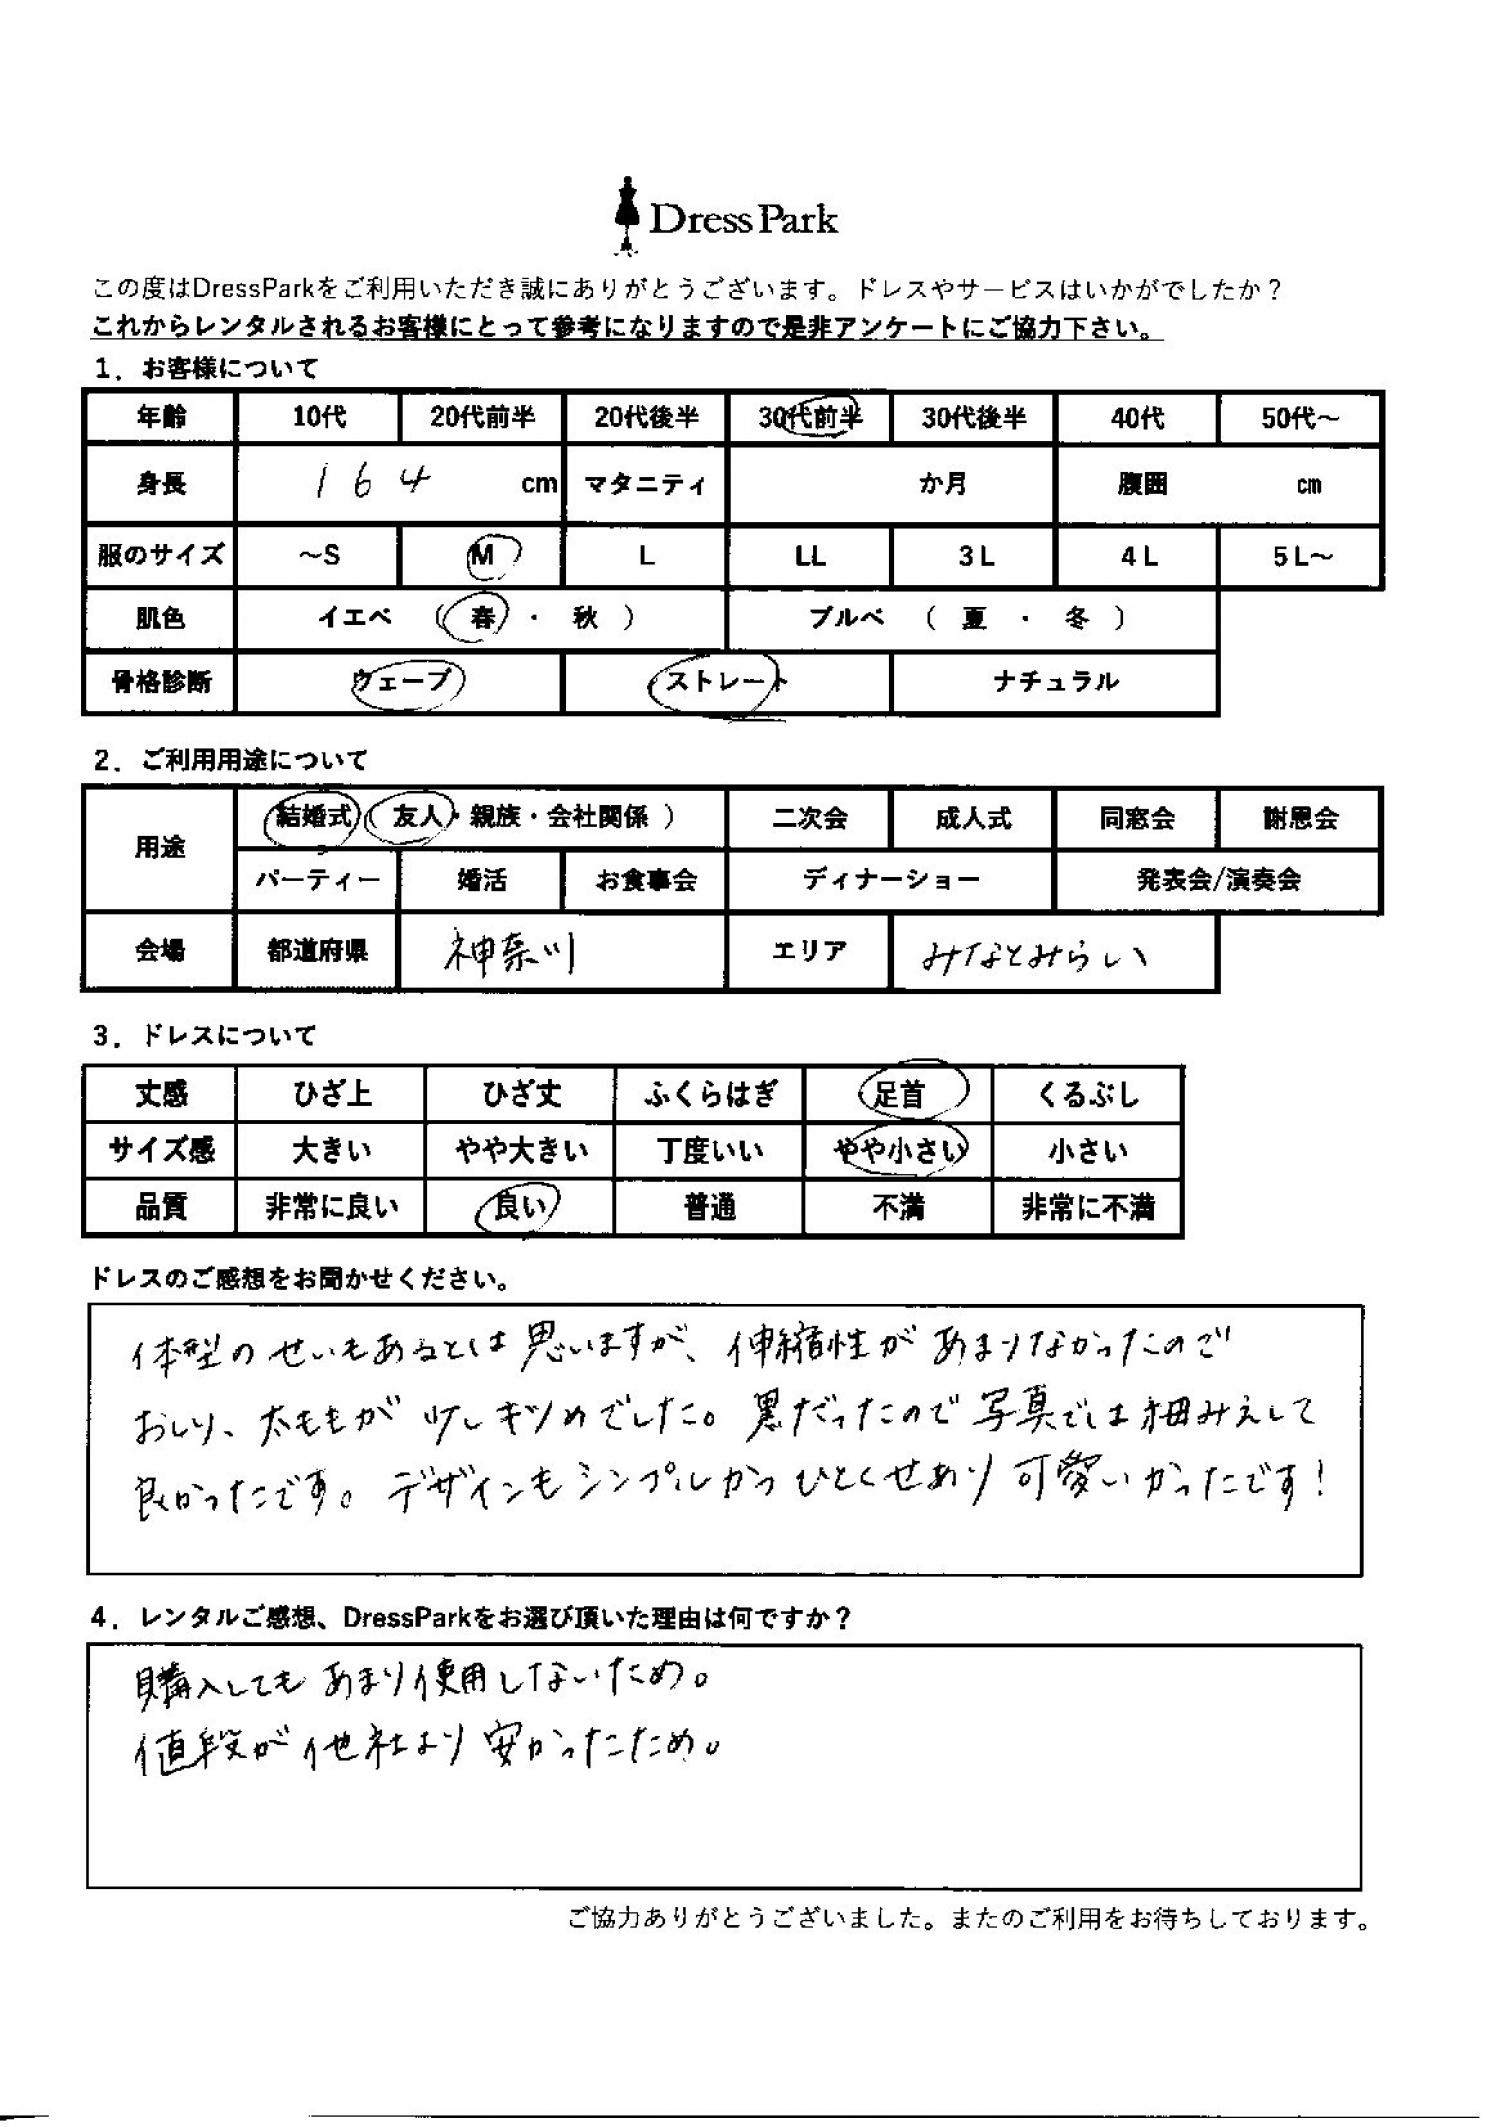 Dress Park
この度はDressParkをご利用いただき誠にありがとうございます。ドレスやサービスはいかがでしたか？
これからレンタルされるお客様にとって参考になりますので是非アンケートにご協力下さい。
1．お客様について
年齢 10代 20代前半 20代後半 30代前半 30代後半 40代 50代～
身長 164 cm マタニティ か月 腹囲 cm
服のサイズ ～S M L LL 3L 4L 5L～
肌色 イエベ （ 春 ・ 秋 ） ブルベ （ 夏 ・ 冬 ）
骨格診断 ウェーブ ストレート ナチュラル
2．ご利用用途について
用途 結婚式（ 友人・親族・会社関係 ） 二次会 成人式 同窓会 謝恩会
パーティー 婚活 お食事会 ディナーショー 発表会/演奏会
会場 都道府県 神奈川 エリア みなとみらい
3．ドレスについて
丈感 ひざ上 ひざ丈 ふくらはぎ 足首 くるぶし
サイズ感 大きい やや大きい 丁度いい やや小さい 小さい
品質 非常に良い 良い 普通 不満 非常に不満
ドレスのご感想をお聞かせください。
体型のせいもあるとは思いますが、伸縮性があまりなかったので
おしり、太ももが少しキツめでした。黒だったので写真では細みえして
良かったです。デザインもシンプルかつひとくせあり可愛いかったです！
4．レンタルご感想、DressParkをお選び頂いた理由は何ですか？
購入してもあまり使用しないため。
値段が他社より安かったため。
ご協力ありがとうございました。またのご利用をお待ちしております。